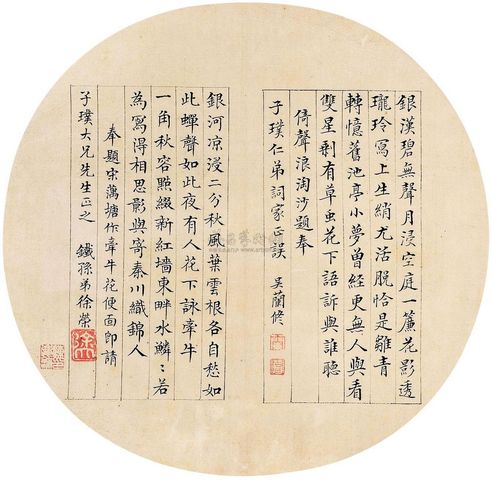 銀漢碧無聲月浸空庭一簾花影透
瓏玲寫上生綃尤活脫恰是雛青
轉憶舊池亭小夢曾經更無人與看
雙星剩有草虫花下語訴與誰聽
倚聲浪淘沙題奉
子璞仁弟詞家正誤 吳蘭修
銀河凉浸二分秋風葉雲根各自愁如
此蟬聲如此夜有人花下詠牽牛
一角秋容點綴新紅墻東畔水鱗〻若
為寫得相思影與寄秦川織錦人
奉題宋藕塘作牽牛花便面即請
子璞大兄先生正之 鐵孫弟徐榮
徐